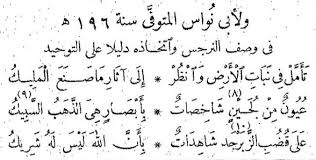 ولأبي نواس المتوفَّى سنة ١٩٦ ھ
في وصف النرجس وٱتخاذه دليلا على التوحيد
تَأَمَّلْ فِي نَبَاتِ الْأَرْضِ وَٱنْظُرْ * إِلَى آثَارِ مَا صَنَعَ الْمَلِيكُ
عُيُونٌ مِنْ لُجَيْنٍ (٨) شَاخِصَاتٌ * بِأَبْصَارٍ هِيَ الذَّهَبُ السَّبِيكُ (٩)
عَلَى قُضُبِ الزَّبَرْجَدِ شَاهِدَاتٌ * بِأَنَّ اللهَ لَيْسَ لَهُ شَرِيكُ